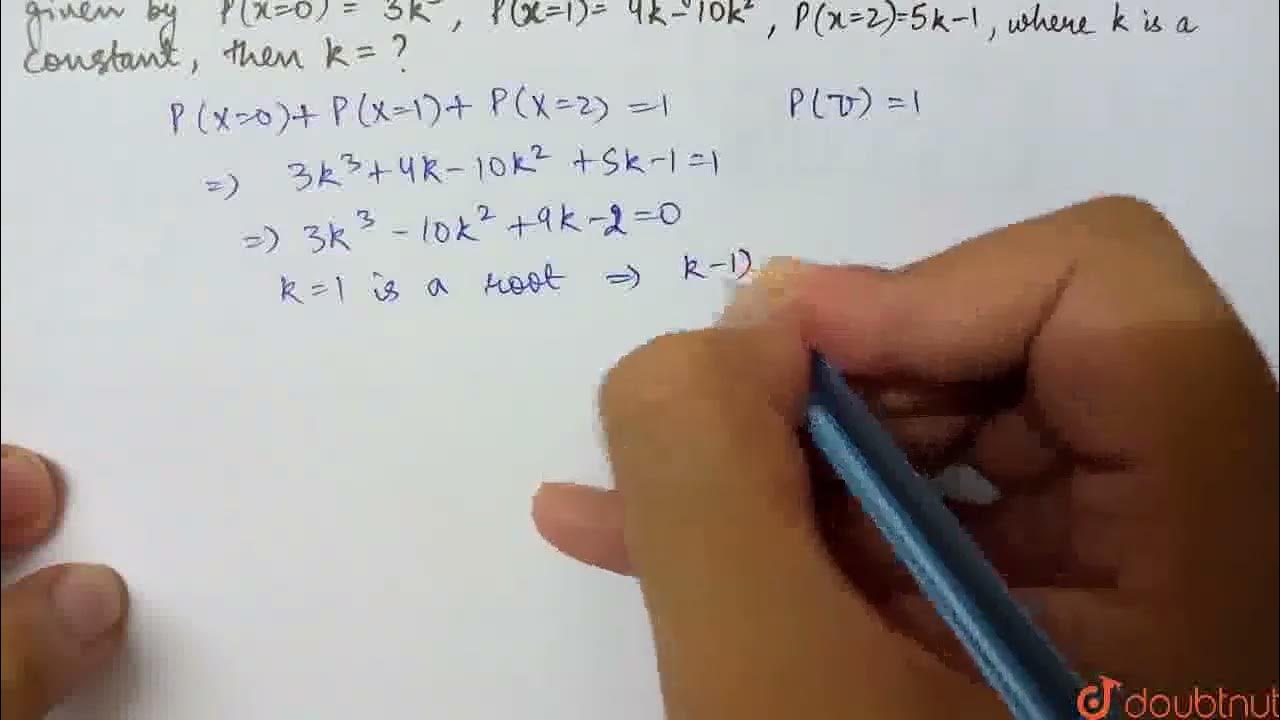 given by P(x=0) = 3k³, P(x=1)= 4k-10k², P(x=2)=5k-1, where k is a
constant, then k = ?
P(X=0)+ P(X=1)+ P(X=2) =1
P(v) =1
=> 3k³+4k-10k² +5k-1=1
=> 3k³ -10k² +9k-2=0
k=1 is a root => k-1)
doubtnut